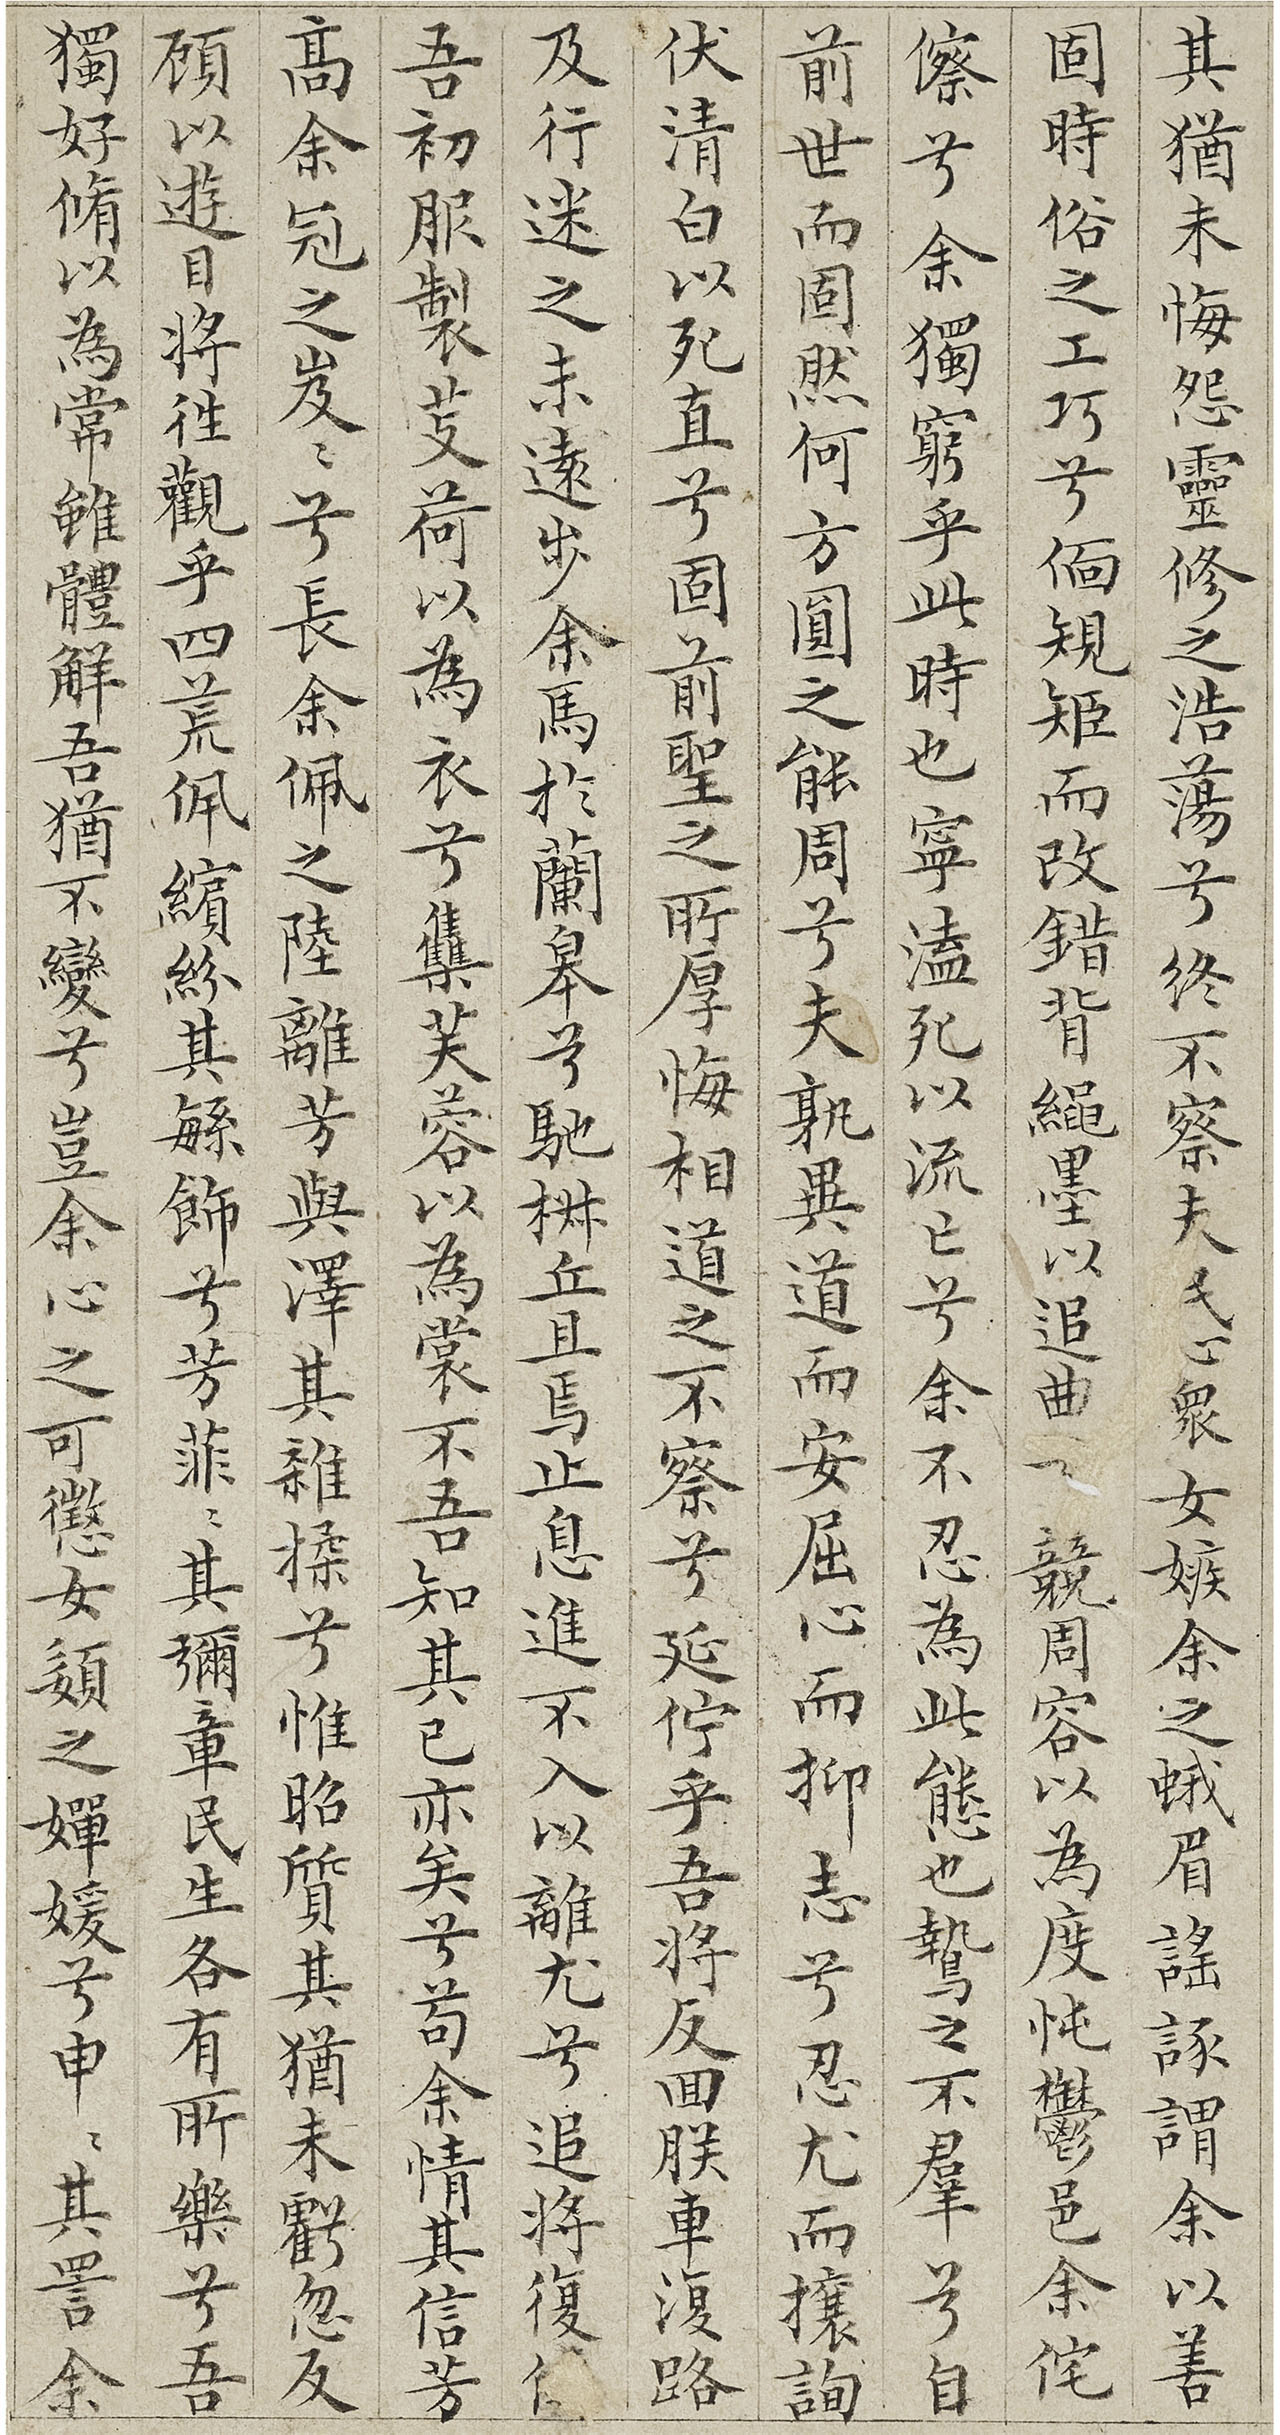 其猶未悔怨靈修之浩蕩兮終不察夫民心衆女嫉余之蛾眉謠諑謂余以善
固時俗之工巧兮偭規矩而改錯背繩墨以追曲競周容以為度忳鬱邑余侘
傺兮余獨窮乎此時也寧溘死以流亡兮余不忍為此態也鷙之不羣兮自
前世而固然何方圓之能周兮夫孰異道而安屈心而抑志兮忍尤而攘詢
伏清白以死直兮固前聖之所厚悔相道之不察兮延佇乎吾將反回朕車復路
及行迷之未遠步余馬於蘭皋兮馳椒丘且焉止息進不入以離尤兮追將復
吾初服製芰荷以為衣兮集芙蓉以為裳不吾知其已亦矣兮苟余情其信芳
高余冠之岌〻兮長余佩之陸離芳與澤其雜揉兮惟昭質其猶未虧忽反
顧以遊目將往觀乎四荒佩繽紛其繁飾兮芳菲〻其彌章民生各有所樂兮吾
獨好脩以為常雖體解吾猶不變兮豈余心之可懲女嬃之嬋媛兮申〻其詈余